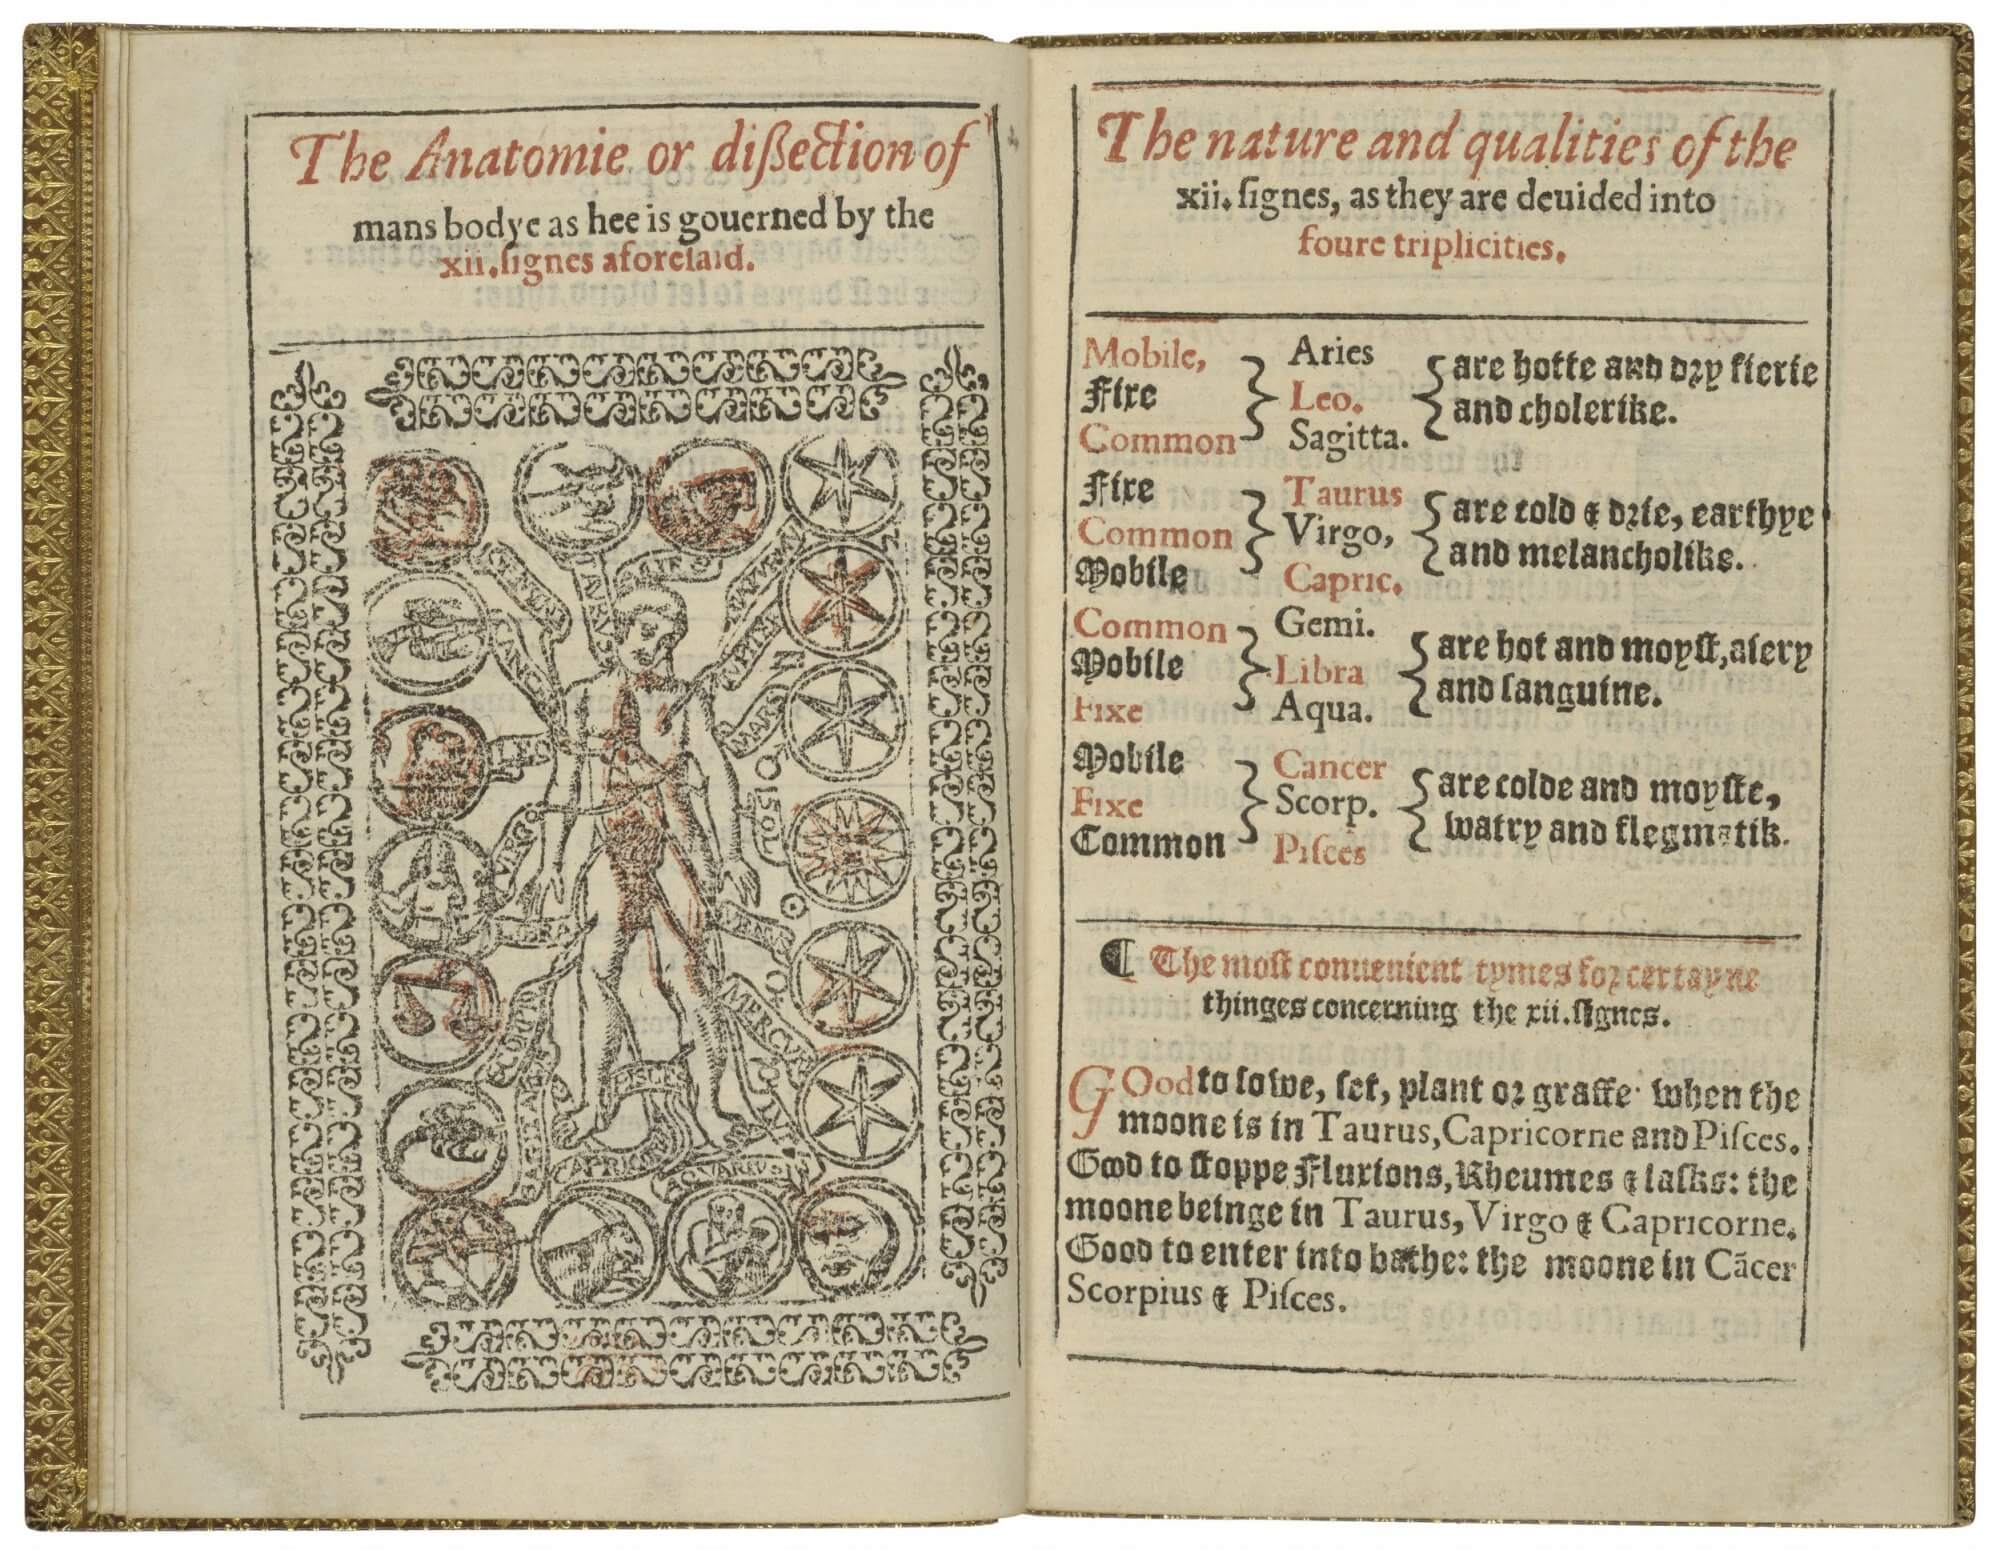 The Anatomie or dißection of
mans bodye as hee is gouerned by the
xii.ſignes aforeſaid.
GEMIN
TAVR
ARIES
SATVRN
IVPIT
CANC
MARS
LEO
SOL
VIRGO
LIBRA
VENVS
SCORPIO
MERCVR
SAGITARI
PISCES
LVNA
CAPRICO
AQVARIVS
The nature and qualities of the
xii. ſignes, as they are deuided into
foure triplicities.
Mobile, Aries are hotte and dry fierie
Fixe Leo. and cholerike.
Common Sagitta.
Fixe Taurus are cold & drie, earthye
Common Virgo, and melancholike.
Mobile Capric.
Common Gemi. are hot and moyſt, aiery
Mobile Libra and ſanguine.
Fixe Aqua.
Mobile Cancer are colde and moyſte,
Fixe Scorp. watry and flegmatik.
Common Piſces
¶ The moſt conuenient tymes for certayne
thinges concerning the xii. ſignes.
GOod to ſowe, ſet, plant or graffe when the
moone is in Taurus, Capricorne and Piſces.
Good to ſtoppe Fluxions, Rheumes & laſks: the
moone beinge in Taurus, Virgo & Capricorne.
Good to enter into bathe: the moone in Cãcer
Scorpius & Piſces.